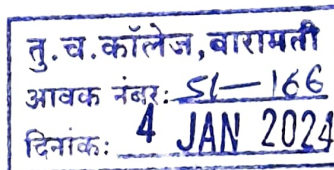 तु.च.कॉलेज, बारामती
आवक नंबर: S1-166
दिनांक: 4 JAN 2024